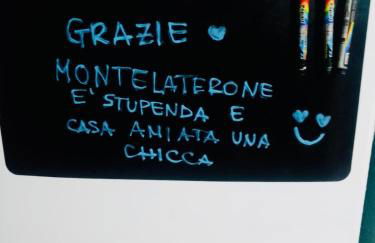 GRAZIE
MONTELATERONE
E' STUPENDA E
CASA AMIATA UNA
CHICCA